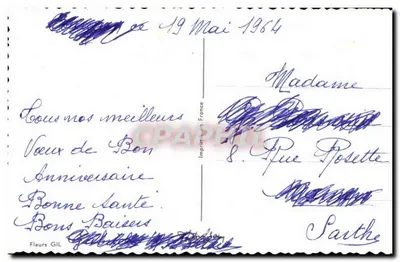 le 19 Mai 1964
Tous nos meilleurs
Vœux de Bon
Anniversaire
Bonne Santé.
Bons Baisers
Fleurs GIL
Imprimé en France
CPARAMA
Madame
8 Rue Rosette
Sarthe